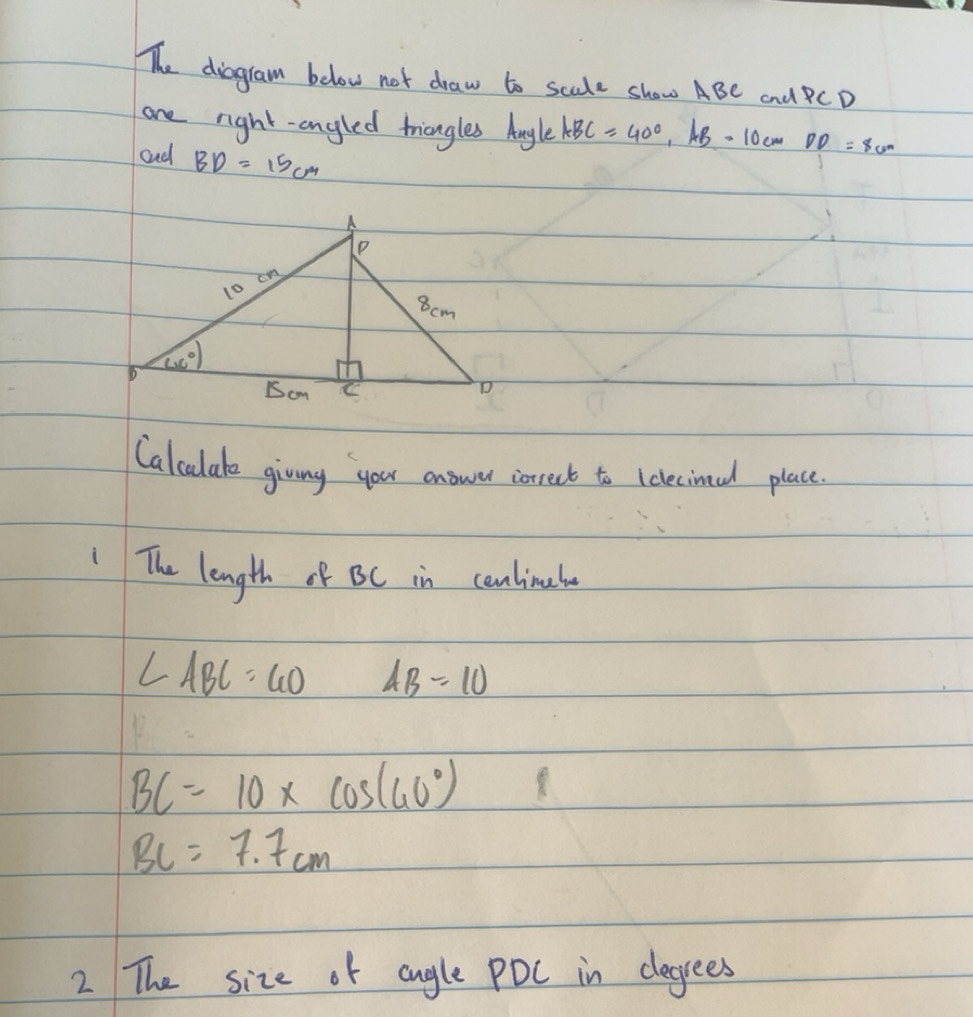 The diagram below not draw to scale show ABC and PCD
are right-angled triangles Angle ABC = 40°, AB = 10cm PD = 8cm
and BD = 15cm
A
P
10 cm
8cm
40°
B
15cm
C
D
Calculate giving your answer correct to 1 decimal place.
1 The length of BC in centimetre
∠ ABC = 40 AB = 10
BC = 10 x cos(40°)
BC = 7.7cm
2 The size of angle PDC in degrees